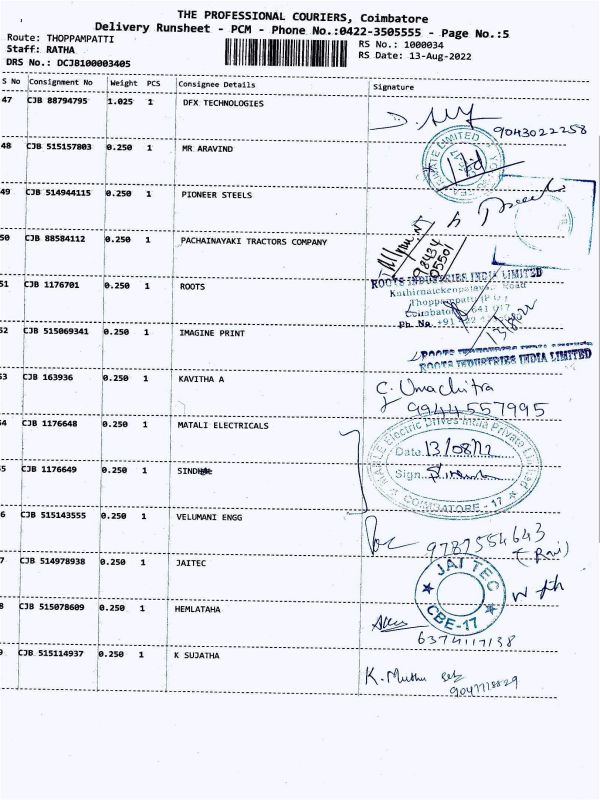 THE PROFESSIONAL COURIERS, Coimbatore
Delivery Runsheet - PCM - Phone No.:0422-3505555 - Page No.:5
Route: THOPPAMPATTI
Staff: RATHA
DRS No.: DCJB100003405
RS No.: 1000034
RS Date: 13-Aug-2022
S No Consignment No Weight PCS Consignee Details Signature
47 CJB 88794795 1.025 1 DFX TECHNOLOGIES
9043022258
48 CJB 515157803 0.250 1 MR ARAVIND
49 CJB 514944115 0.250 1 PIONEER STEELS
50 CJB 88584112 0.250 1 PACHAINAYAKI TRACTORS COMPANY
98434
05501
51 CJB 1176701 0.250 1 ROOTS
ROOTS INDUSTRIES INDIA LIMITED
Kathirnaickenpalayam Road
Coimbatore 641 017
Ph. No. +91
13/8/22
52 CJB 515069341 0.250 1 IMAGINE PRINT
ROOTS INDUSTRIES INDIA LIMITED
ROOTS INDUSTRIES INDIA LIMITED
53 CJB 163936 0.250 1 KAVITHA A
G. Umachitra
9944557995
54 CJB 1176648 0.250 1 MATALI ELECTRICALS
Electric Drives India Private Limited
Date 13/08/22
Sign.
COIMBATORE - 17
55 CJB 1176649 0.250 1
6 CJB 515143555 0.250 1 VELUMANI ENGG
9787554643
(Ravi)
7 CJB 514978938 0.250 1 JAITEC
JAI TEC
CBE-17
8 CJB 515078609 0.250 1 HEMLATAHA
6374117138
9 CJB 515114937 0.250 1 K SUJATHA
K. Muthu